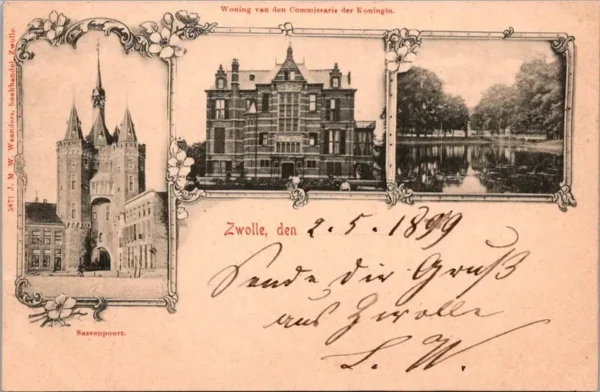 Woning van den Commissaris der Koningin.
5871 J. M. W. Waanders, boekhandel, Zwolle.
Sassenpoort.
Zwolle, den 2.5.1899
Sende dir Gruß
aus Zwolle
L. W.